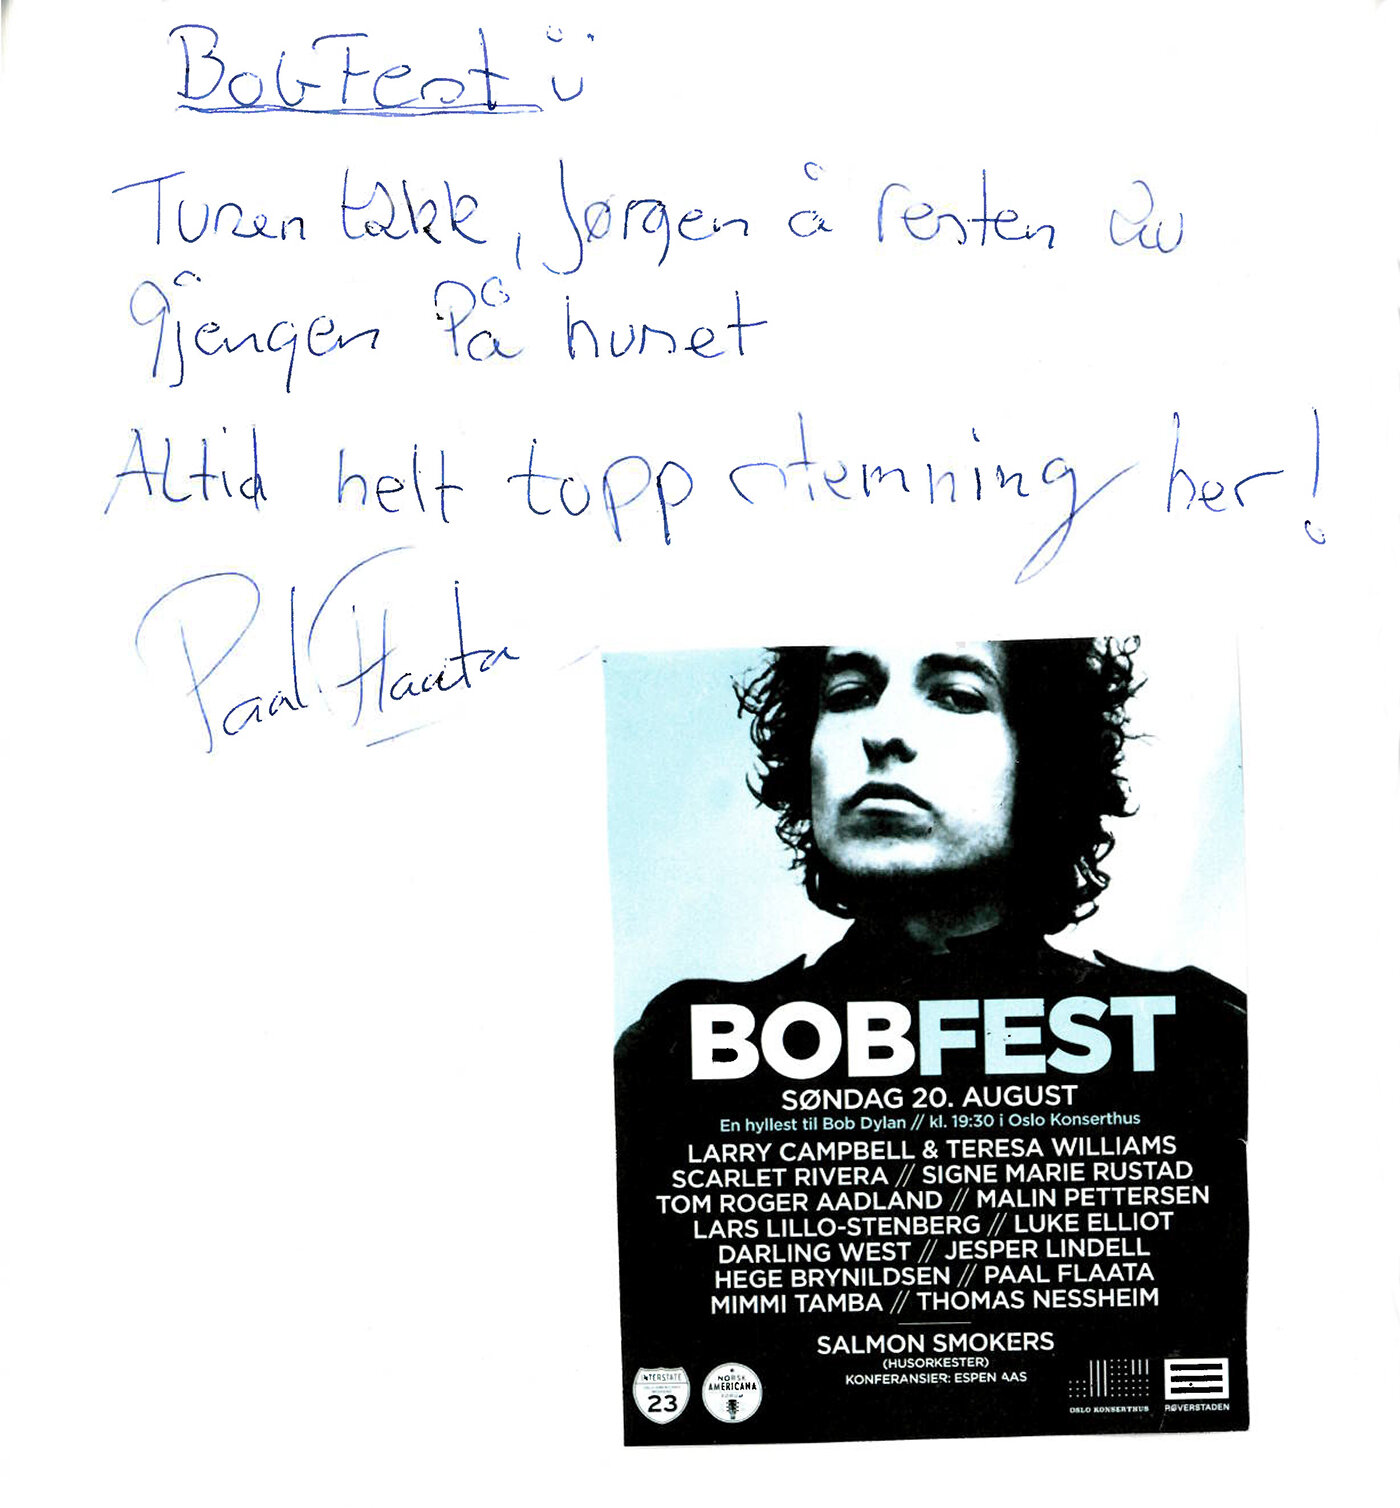 BobFest ü
Tusen takk, Jørgen å resten av
gjengen På huset
Altid helt topp stemning her!
Paal Flaata
BOBFEST
SØNDAG 20. AUGUST
En hyllest til Bob Dylan // kl. 19:30 i Oslo Konserthus
LARRY CAMPBELL & TERESA WILLIAMS
SCARLET RIVERA // SIGNE MARIE RUSTAD
TOM ROGER AADLAND // MALIN PETTERSEN
LARS LILLO-STENBERG // LUKE ELLIOT
DARLING WEST // JESPER LINDELL
HEGE BRYNILDSEN // PAAL FLAATA
MIMMI TAMBA // THOMAS NESSHEIM
SALMON SMOKERS
(HUSORKESTER)
KONFERANSIER: ESPEN AAS
INTERSTATE
23
NORSK
AMERICANA
FORUM
OSLO KONSERTHUS
RØVERSTADEN